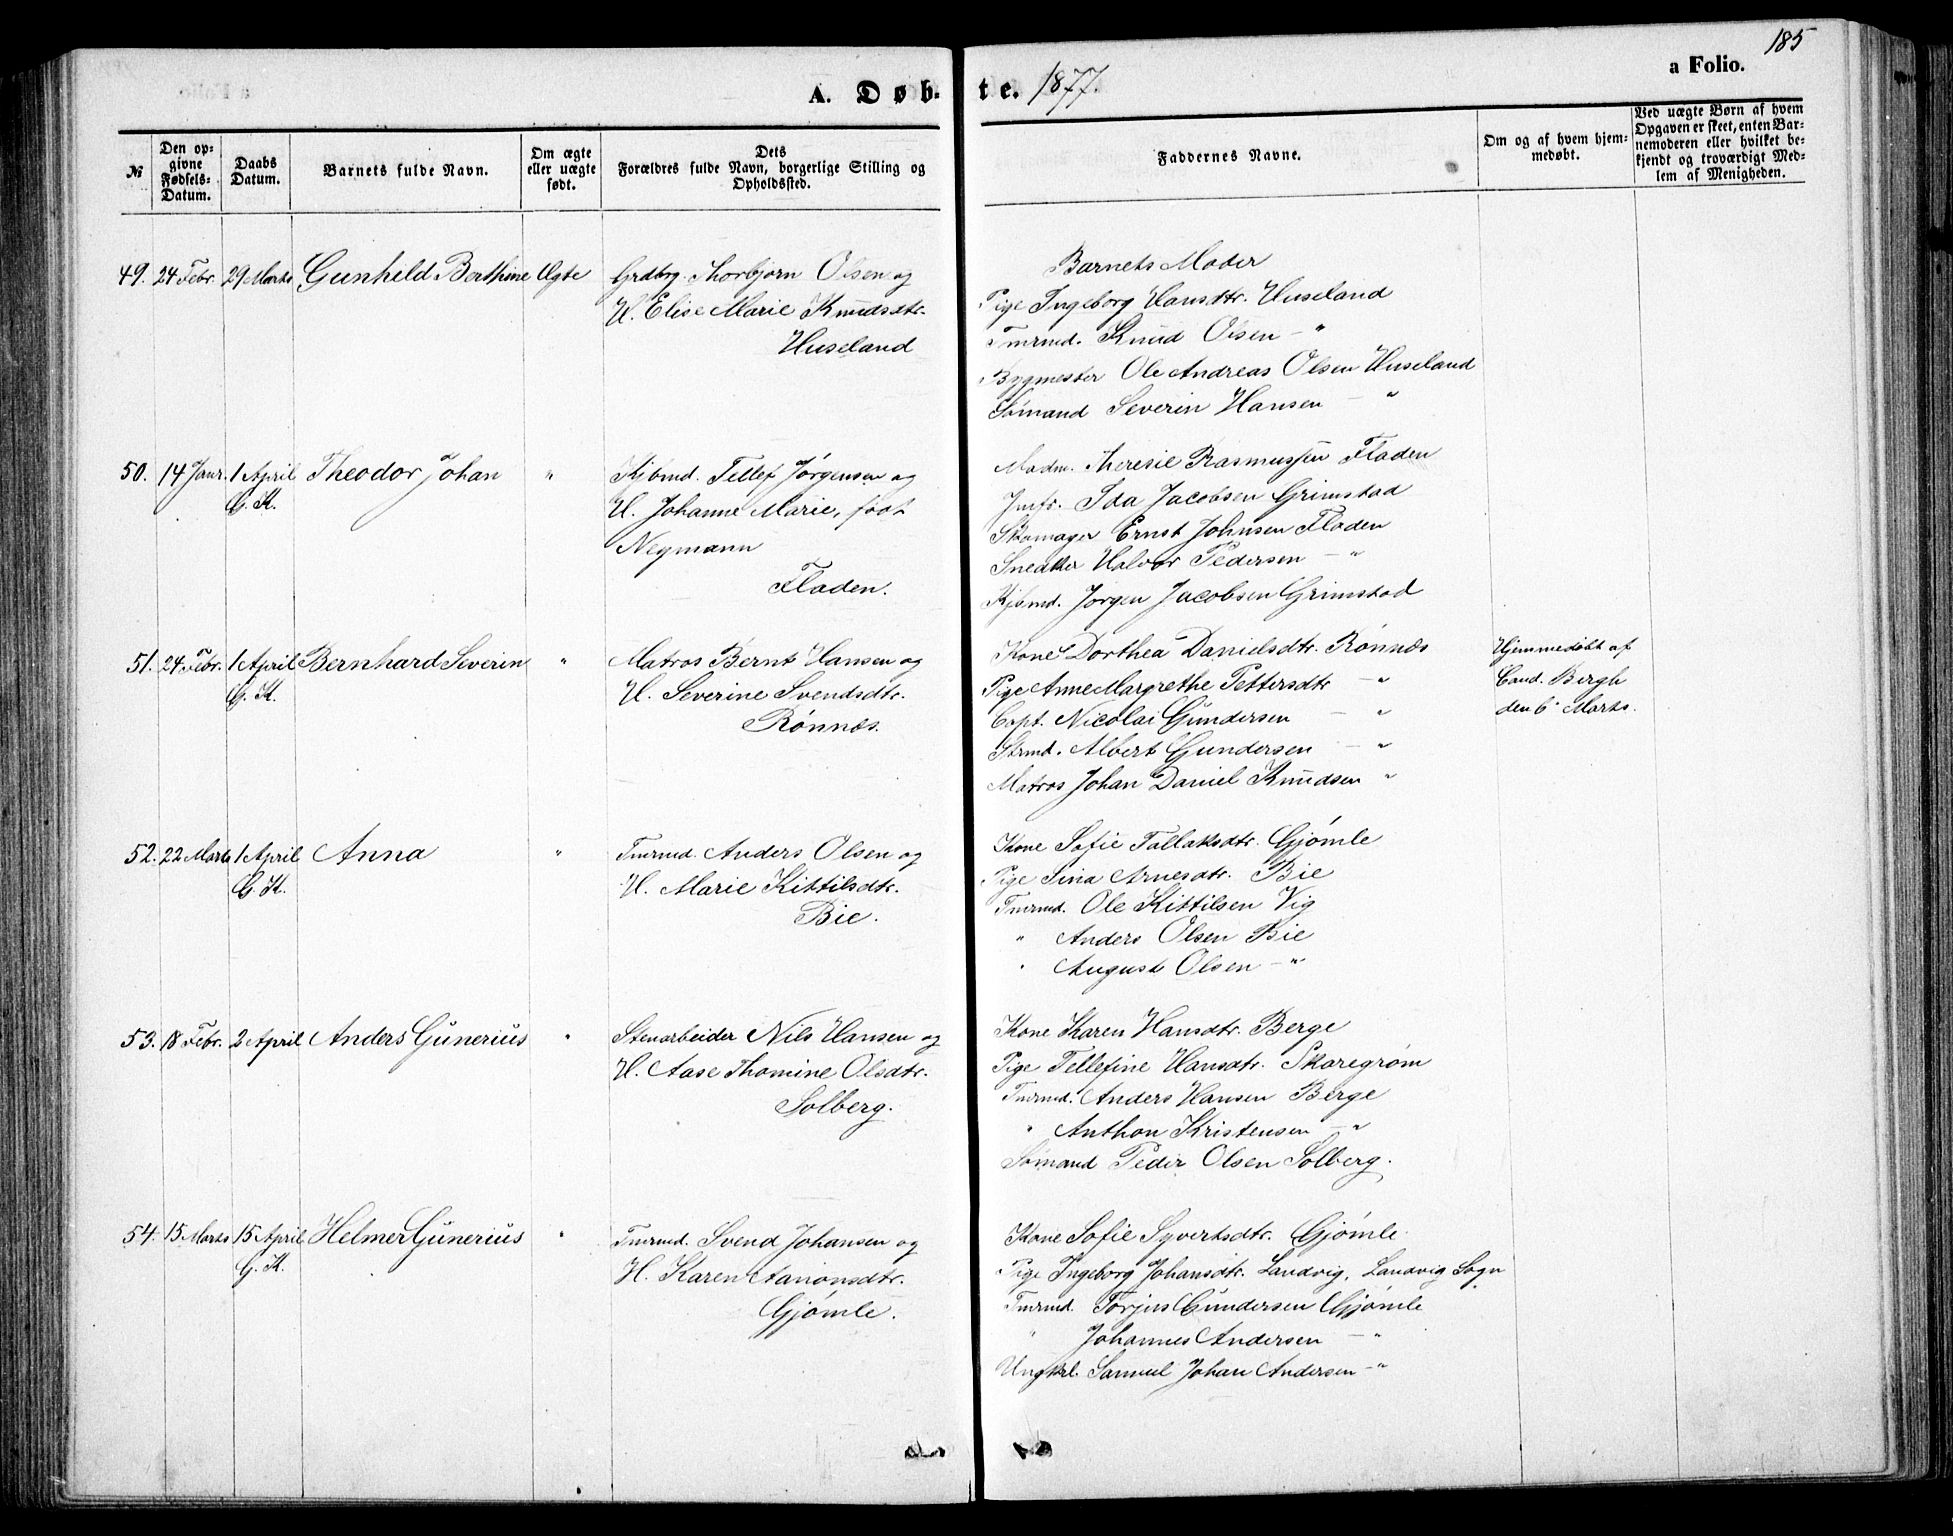 185
A. Døbte. 1877.
a Folio.
№
Den opgivne Fødsels-Datum.
Daabs Datum.
Barnets fulde Navn.
Om ægte eller uægte født.
Dets Forældres fulde Navn, borgerlige Stilling og Opholdssted.
Faddernes Navne.
Om og af hvem hjemmedøbt.
Ved uægte Børn af hvem Opgaven er skeet, enten Barnemoderen eller hvilket bekjendt og troværdigt Medlem af Menigheden.
49. 24 Febr. 29 Marts Gunhild Berthine Ægte Grdbrg. Thorbjørn Olsen og
H. Elise Marie Knudsdtr.
Huseland
Barnets Moder
Pige Ingeborg Hansdtr. Huseland
Tmrmd. Knud Olsen — "
Bygmester Ole Andreas Olsen Huseland
Sømand Severin Hansen — "
50. 14 Janr. 1 April Theodor Johan " Kjbmd. Tellef Jørgensen og
G. K. H. Johanne Marie, født
Neymann
Fladen.
Madm. Theresie Rasmussen Fladen
Jmfr. Ida Jacobsen Grimstad
Skomager Ernst Johnsen Fladen
Snedker Halvor Pedersen — "
Kjbmd. Jørgen Jacobsen Grimstad
51. 24 Febr. 1 April Bernhard Severin " Matros Bernt Hansen og
G. K. H. Severine Svendsdtr.
Rønnes.
Kone Dorthea Danielsdtr. Rønnes
Pige Anne Margrethe Pettersdtr — "
Capt. Nicolai Gundersen — "
Strmd. Albert Gundersen — "
Matros Johan Daniel Knudsen "
Hjemmedøbt af
Cand. Bergh
den 6 Marts.
52. 22 Marts 1 April Anna " Tmrmd. Anders Olsen og
G. K. H. Marie Kittilsdtr.
Bie.
Kone Sofie Tallaksdtr. Gjømle
Pige Sina Arnesdtr. Bie
Tmrmd. Ole Kittilsen Vig
" Anders Olsen Bie
" August Olsen — "
53. 18 Febr. 2 April Anders Gunerius " Stenarbeider Nils Hansen og
H. Aase Thomine Olsdtr.
Solberg.
Kone Karen Hansdtr. Berge
Pige Tellefine Hansdtr. Skaregrøm
Tmrmd. Anders Hansen Berge
" Anthon Kristensen — "
Sømand Peder Olsen Solberg.
54. 15 Marts 15 April Helmer Gunerius " Tmrmd. Svend Johansen og
G. K. H. Karen Aanonsdtr.
Gjømle.
Kone Sofie Syvertsdtr. Gjømle
Pige Ingeborg Johansdtr. Landvig, Landvig Sogn
Tmrmd. Torjus Gundersen Gjømle
" Johannes Andersen — "
Ungkrl. Samuel Johan Andersen — "